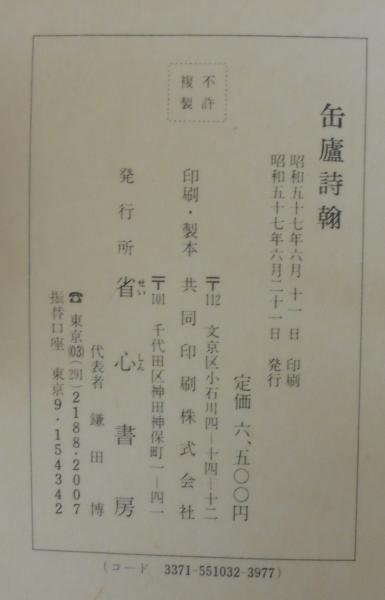 缶廬詩翰
昭和五十七年六月 十一日 印刷
昭和五十七年六月二十一日 発行
定価 六、五〇〇円
不許
複製
〒112 文京区小石川四―十四―十二
印刷・製本 共同印刷株式会社
〒101 千代田区神田神保町一―四一
発行所 省心書房
せいしん
代表者 鎌田博
☎東京(03)(291)2188・2007
振替口座 東京9・154342
(コード 3371-551032-3977)